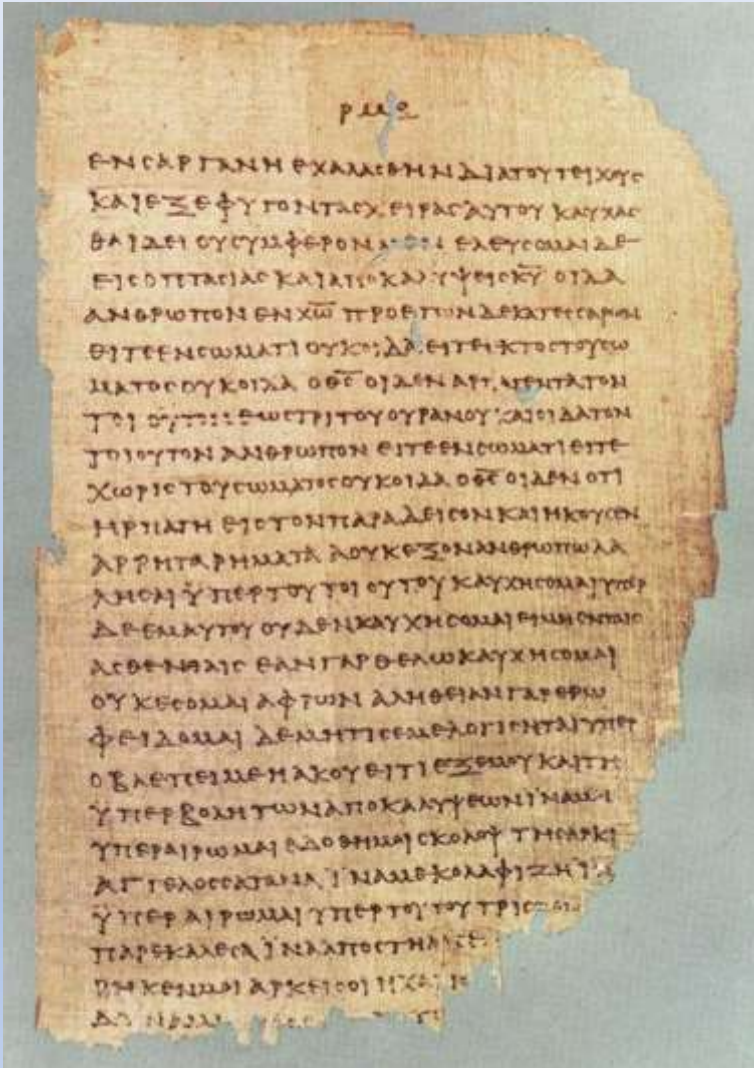 ΡΜΘ
ΕΝCΑΡΓΑΝΗ ΕΧΑΛΑCΘΗΝ ΔΙΑΤΟΥΤΕΙΧΟΥC
ΚΑΙΕΞΕΦΥΓΟΝΤΑCΧΕΙΡΑCΑΥΤΟΥ ΚΑΥΧΑC
ΘΑΙΔΕΙ ΟΥCΥΜΦΕΡΟΝ ΕΛΕΥCΟΜΑΙΔΕ
ΕΙCΟΠΤΑCΙΑC ΚΑΙΑΠΟΚΑΛΥΨΕΙCΚ̅Υ̅ ΟΙΔΑ
ΑΝΘΡΩΠΟΝ ΕΝΧ̅Ω̅ ΠΡΟΕΤΩΝΔΕΚΑΤΕCCΑΡΩΝ
ΕΙΤΕΕΝCΩΜΑΤΙΟΥΚΟΙΔΑ ΕΙΤΕΕΚΤΟCΤΟΥCΩ
ΜΑΤΟCΟΥΚΟΙΔΑ ΟΘ̅C̅ ΟΙΔΕΝ ΑΡΠΑΓΕΝΤΑΤΟΝ
ΤΟΙΟΥΤΟΝΕΩCΤΡΙΤΟΥΟΥΡΑΝΟΥ ΚΑΙΟΙΔΑΤΟΝ
ΤΟΙΟΥΤΟΝ ΑΝΘΡΩΠΟΝ ΕΙΤΕΕΝCΩΜΑΤΙΕΙΤΕ
ΧΩΡΙCΤΟΥCΩΜΑΤΟCΟΥΚΟΙΔΑ ΟΘ̅C̅ ΟΙΔΕΝ ΟΤΙ
ΗΡΠΑΓΗ ΕΙCΤΟΝΠΑΡΑΔΕΙCΟΝΚΑΙΗΚΟΥCΕΝ
ΑΡΡΗΤΑΡΗΜΑΤΑ ΑΟΥΚΕΞΟΝΑΝΘΡΩΠΩΛΑ
ΛΗCΑΙ ΫΠΕΡΤΟΥΤΟΙΟΥΤΟΥ ΚΑΥΧΗCΟΜΑΙΥΠΕΡ
ΔΕΕΜΑΥΤΟΥ ΟΥΔΕΝΚΑΥΧΗCΟΜΑΙΕΙΜΗΕΝΤΑΙC
ΑCΘΕΝΕΙΑΙC ΕΑΝΓΑΡΘΕΛΩΚΑΥΧΗCΟΜΑΙ
ΟΥΚΕCΟΜΑΙ ΑΦΡΩΝ ΑΛΗΘΕΙΑΝΓΑΡΕΡΩ
ΦΕΙΔΟΜΑΙ ΔΕΜΗΤΙCΕΜΕΛΟΓΙCΗΤΑΙΥΠΕΡ
ΟΒΛΕΠΕΙΜΕΗΑΚΟΥΕΙΤΙΕΞΕΜΟΥ ΚΑΙΤΗ
ΫΠΕΡΒΟΛΗΤΩΝΑΠΟΚΑΛΥΨΕΩΝΪΝΑΜΗ
ΥΠΕΡΑΙΡΩΜΑΙ ΕΔΟΘΗΜΟΙCΚΟΛΟΨ ΤΗCΑΡΚΙ
ΑΓΓΕΛΟCCΑΤΑΝΑ ΪΝΑΜΕΚΟΛΑΦΙΖΗΪΝΑ
ΫΠΕΡΑΙΡΩΜΑΙ ΥΠΕΡΤΟΥΤΟΥΤΡΙC
ΠΑΡΕΚΑΛΕCΑ ΪΝΑΑΠΟCΤΗ
ΡΗΚΕΝΜΟΙ ΑΡΚΕΙCΟΙ ΗΧΑ